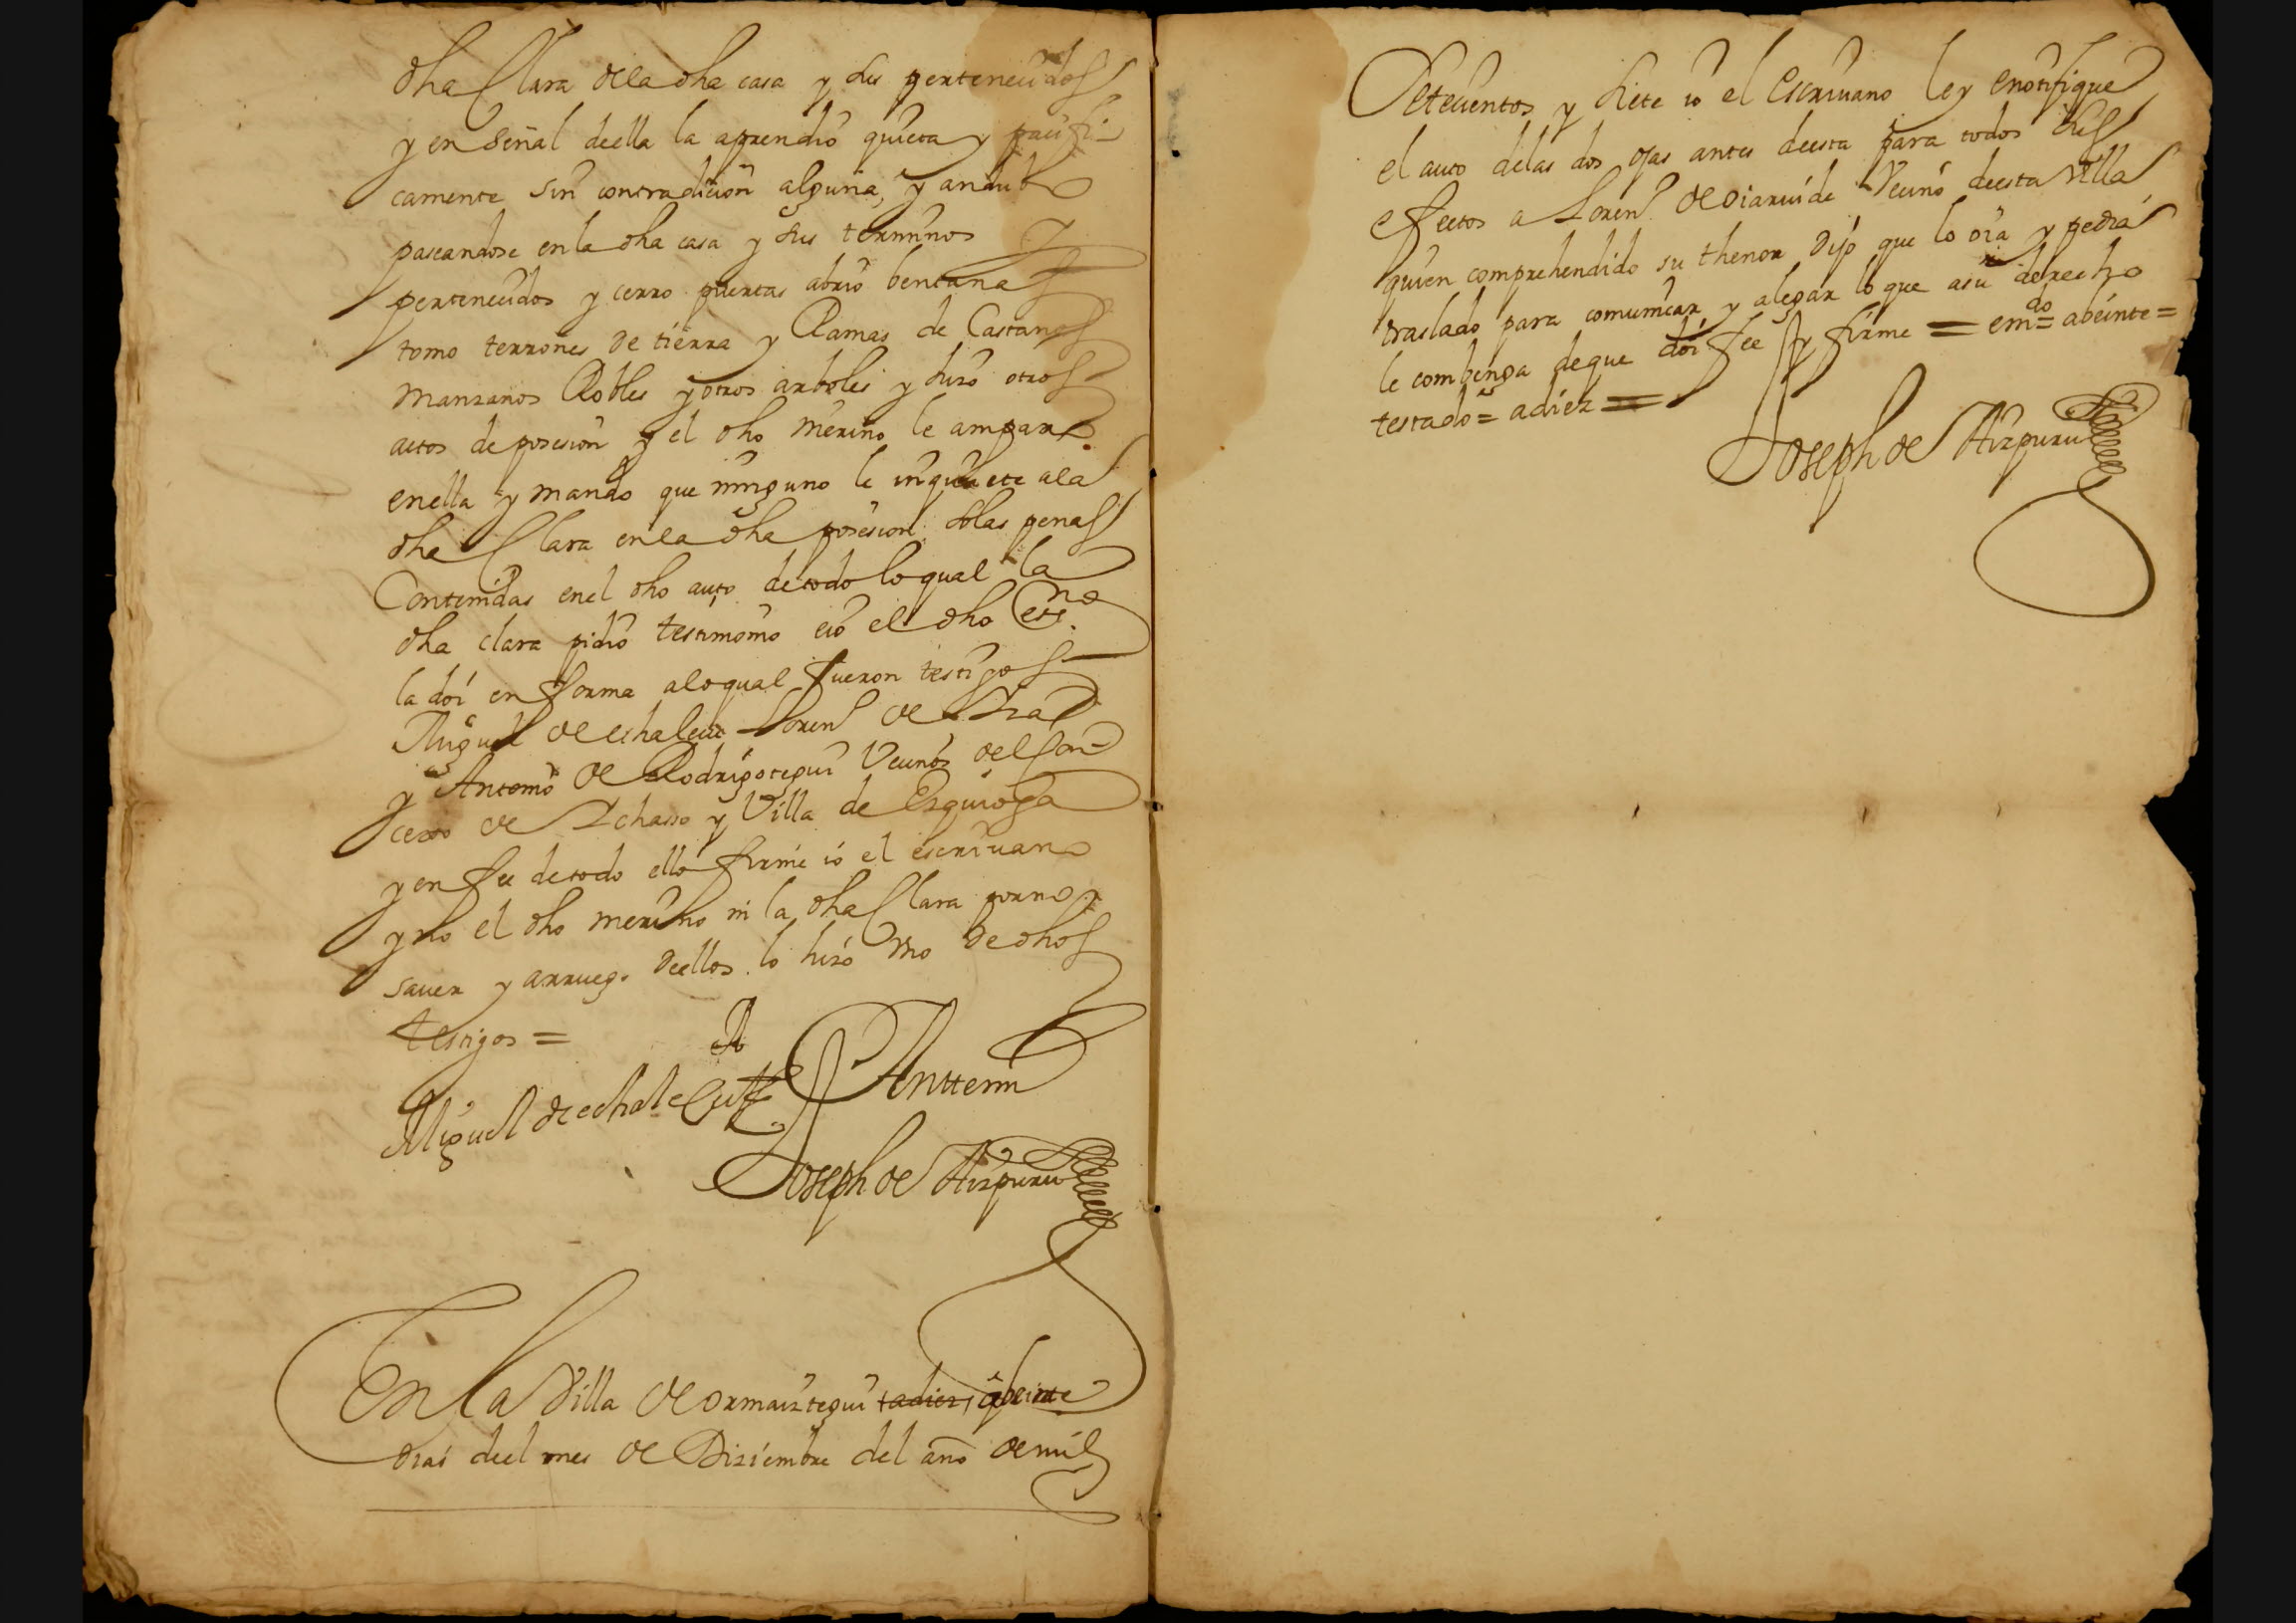 dha Clara de la dha casa y sus pertenecidos
y en señal de ella la aprendio quieta y pacifi-
camente sin contradicion alguna, y andubo
paseandose en la dha casa y sus terminos
pertenecidos y cerro puertas abrio bentanas
tomo terrones de tierra y Ramas de Castanos
manzanos Robles y otros arboles y hizo otros
actos de posesion y el dho merino le amparo
en ella y mando que ninguno le inquiete a la
dha Clara en la dha posesion so las penas
Contenidas en el dho auto de todo lo qual la
dha clara pidio testimonio e io el dho Essno
la doi en forma a lo qual fueron testigos
Miguel de echalecu Loren
y Antonio de Rodrigotegui Vecinos del Con-
cexo de Ichasso y Villa de Ezquioga
y en fee de todo ello firme io el escriuano
y no el dho merino ni la dha Clara por no
sauer y a rruego de ellos lo hizo vno de dhos
testigos =
Miguel de echalecu Anttemi
Joseph de Aizpuru
En la Villa de ormaiztegui a diez, a beinte
dias de el mes de Diziembre del año de mil
Setecientos y siete io el escriuano ley e notifique
el auto de las dos ojas antes de esta para todos sus
efectos a Loren de oiaruide Vecino de esta Villa
quien comprehendido su thenor Dijo que lo oia y pedia
traslado para comunicar y alegar lo que a su derecho
le combenga de que doi fee y firme = emdo = a beinte =
testado = a diez =
Joseph de Aizpuru